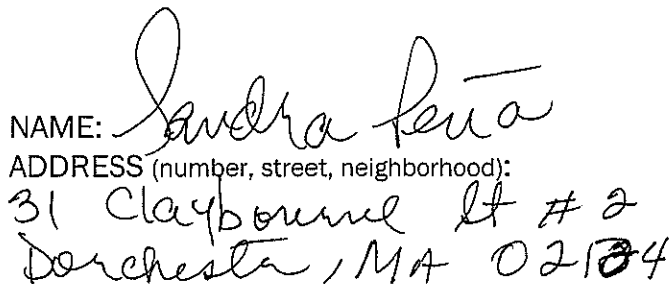 NAME: Sandra Peña
ADDRESS (number, street, neighborhood):
31 Claybourne St # 2
Dorchester, MA 02124